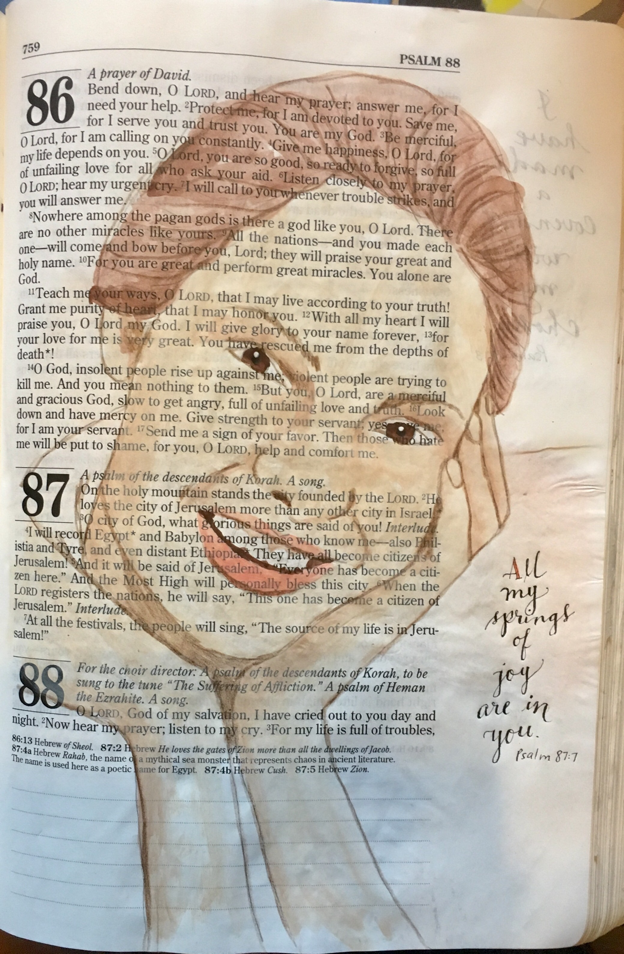 759
PSALM 88
86
A prayer of David.
Bend down, O LORD, and hear my prayer; answer me, for I
need your help. ²Protect me, for I am devoted to you. Save me,
for I serve you and trust you. You are my God. ³Be merciful,
O Lord, for I am calling on you constantly. ⁴Give me happiness, O Lord, for
my life depends on you. ⁵O Lord, you are so good, so ready to forgive, so full
of unfailing love for all who ask your aid. ⁶Listen closely to my prayer,
O LORD; hear my urgent cry. ⁷I will call to you whenever trouble strikes, and
you will answer me.
⁸Nowhere among the pagan gods is there a god like you, O Lord. There
are no other miracles like yours. ⁹All the nations—and you made each
one—will come and bow before you, Lord; they will praise your great and
holy name. ¹⁰For you are great and perform great miracles. You alone are
God.
¹¹Teach me your ways, O LORD, that I may live according to your truth!
Grant me purity of heart, that I may honor you. ¹²With all my heart I will
praise you, O Lord my God. I will give glory to your name forever, ¹³for
your love for me is very great. You have rescued me from the depths of
death*!
¹⁴O God, insolent people rise up against me; violent people are trying to
kill me. And you mean nothing to them. ¹⁵But you, O Lord, are a merciful
and gracious God, slow to get angry, full of unfailing love and truth. ¹⁶Look
down and have mercy on me. Give strength to your servant; yes, me,
for I am your servant. ¹⁷Send me a sign of your favor. Then those who hate
me will be put to shame, for you, O LORD, help and comfort me.
87
A psalm of the descendants of Korah. A song.
On the holy mountain stands the city founded by the LORD. ²He
loves the city of Jerusalem more than any other city in Israel.
³O city of God, what glorious things are said of you! Interlude
⁴I will record Egypt* and Babylon among those who know me—also Phil-
istia and Tyre, and even distant Ethiopia. They have all become citizens of
Jerusalem! ⁵And it will be said of Jerusalem, "Everyone has become a citi-
zen here." And the Most High will personally bless this city. ⁶When the
LORD registers the nations, he will say, "This one has become a citizen of
Jerusalem." Interlude
⁷At all the festivals, the people will sing, "The source of my life is in Jeru-
salem!"
88
For the choir director: A psalm of the descendants of Korah, to be
sung to the tune "The Suffering of Affliction." A psalm of Heman
the Ezrahite. A song.
O LORD, God of my salvation, I have cried out to you day and
night. ²Now hear my prayer; listen to my cry. ³For my life is full of troubles,
86:13 Hebrew of Sheol. 87:2 Hebrew He loves the gates of Zion more than all the dwellings of Jacob.
87:4a Hebrew Rahab, the name of a mythical sea monster that represents chaos in ancient literature.
The name is used here as a poetic name for Egypt. 87:4b Hebrew Cush. 87:5 Hebrew Zion.
All
my
springs
of
joy
are in
you.
Psalm 87:7